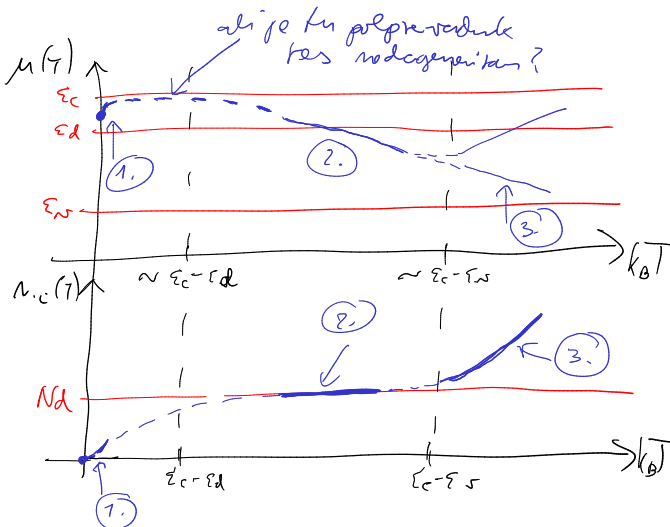 ali je tu polprevodnik
res nedegeneriran?
μ(T)
εc
εd
1.
2.
εv
3.
~ εc-εd
~ εc-εv
kBT
nc(T)
2.
3.
Nd
εc-εd
εc-εv
kBT
1.